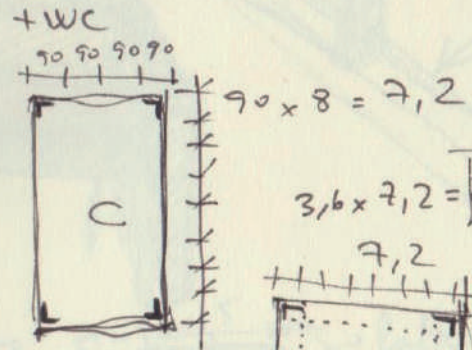 +WC
90 90 90 90
90 x 8 = 7,2
C
3,6 x 7,2 =
7,2